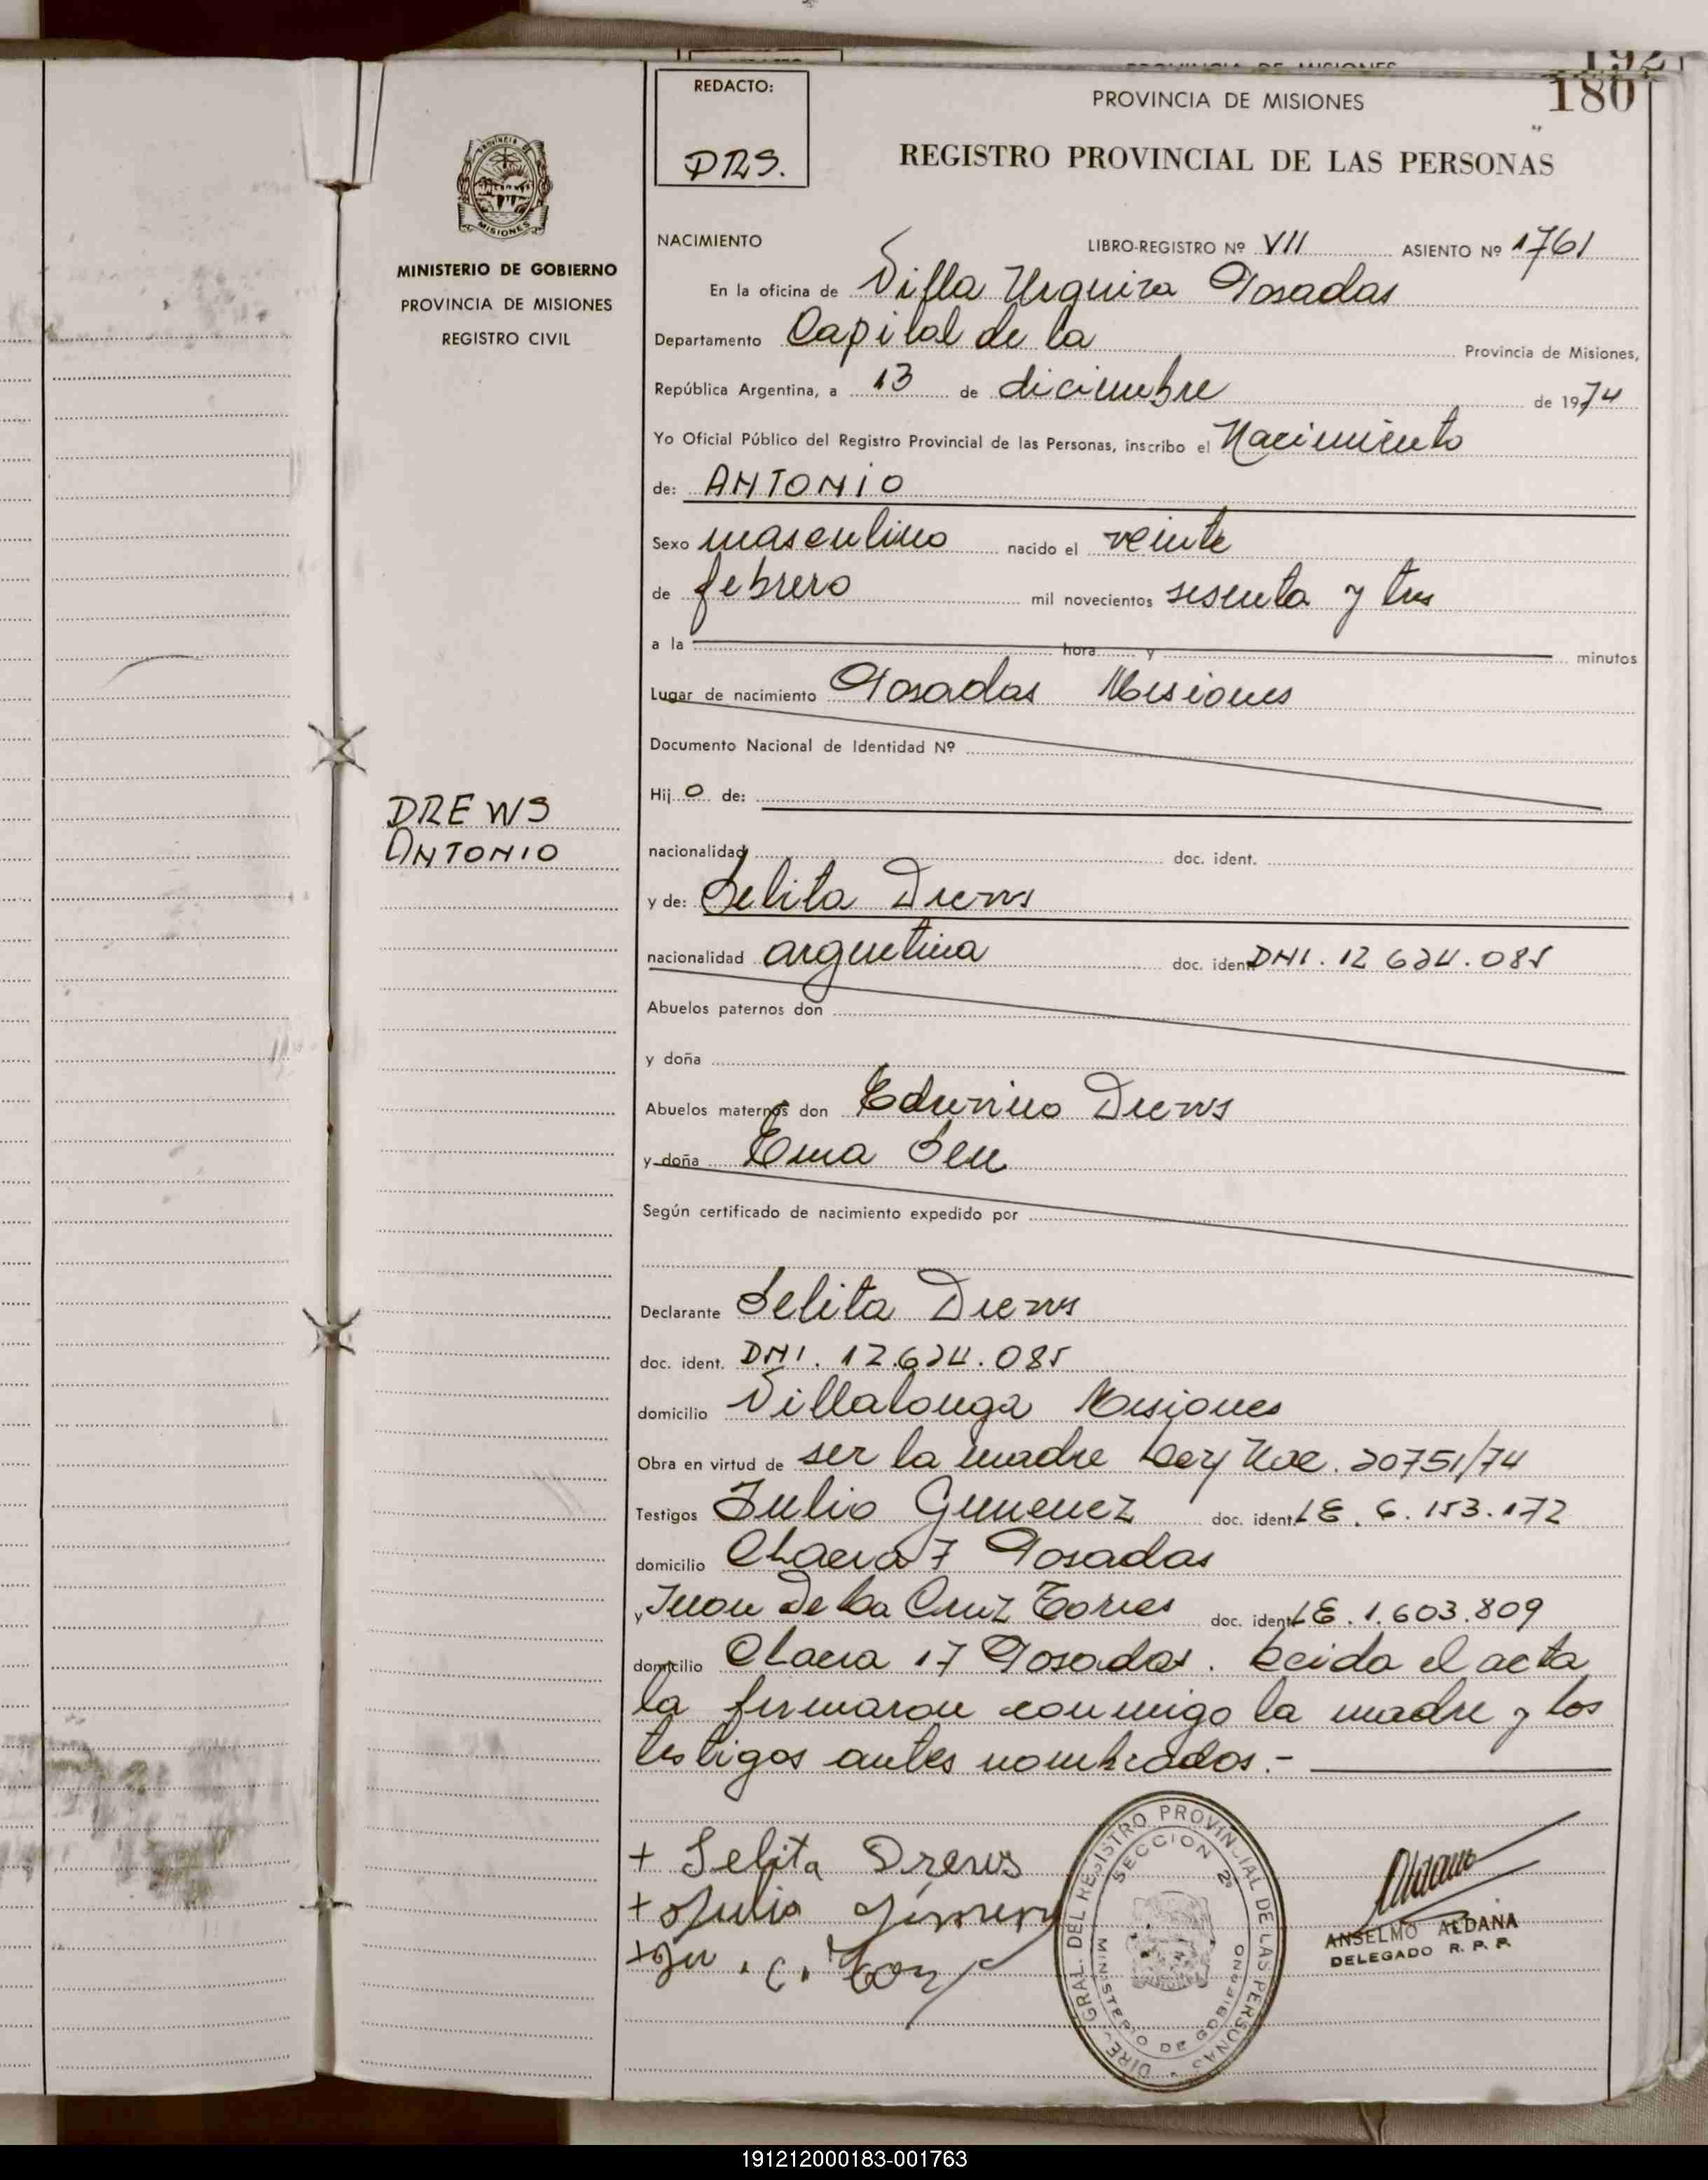 192
PROVINCIA DE MISIONES
180
REDACTO:
DRS.
PROVINCIA DE MISIONES
REGISTRO PROVINCIAL DE LAS PERSONAS
MISIONES
MINISTERIO DE GOBIERNO
PROVINCIA DE MISIONES
REGISTRO CIVIL
NACIMIENTO LIBRO-REGISTRO Nº VII ASIENTO Nº 1761
En la oficina de Villa Urquiza Posadas
Departamento Capital de la Provincia de Misiones,
República Argentina, a 13 de diciembre de 1974
Yo Oficial Público del Registro Provincial de las Personas, inscribo el Nacimiento
de: ANTONIO
Sexo masculino nacido el veinte
de febrero mil novecientos sesenta y tres
a la hora y minutos
Lugar de nacimiento Posadas Misiones
Documento Nacional de Identidad Nº
Hijo de:
DREWS
ANTONIO
nacionalidad doc. ident.
y de: Selita Drews
nacionalidad argentina doc. ident. DNI. 12 624.085
Abuelos paternos don
y doña
Abuelos maternos don Eduvino Drews
y doña Ema
Según certificado de nacimiento expedido por
Declarante Selita Drews
doc. ident. DNI. 12.624.085
domicilio Villalonga Misiones
Obra en virtud de ser la madre Ley Nac. 20751/74
Testigos Julio Gimenez doc. ident. LE. 6.153.172
domicilio Chacra 7 Posadas
y Juan De La Cruz Torres doc. ident. LE. 1.603.809
domicilio Chacra 17 Posadas. Leida el acta
la firmaron conmigo la madre y los
testigos antes nombrados.-
+ Selita Drews
+ Julio Jimenez
+ Ju. C. Torz
DIRE. GRAL. DEL REGISTRO PROVINCIAL DE LAS PERSONAS
SECCION 2º
MINISTERIO DE GOBIERNO
ANSELMO ALDANA
DELEGADO R. P. P.
191212000183-001763